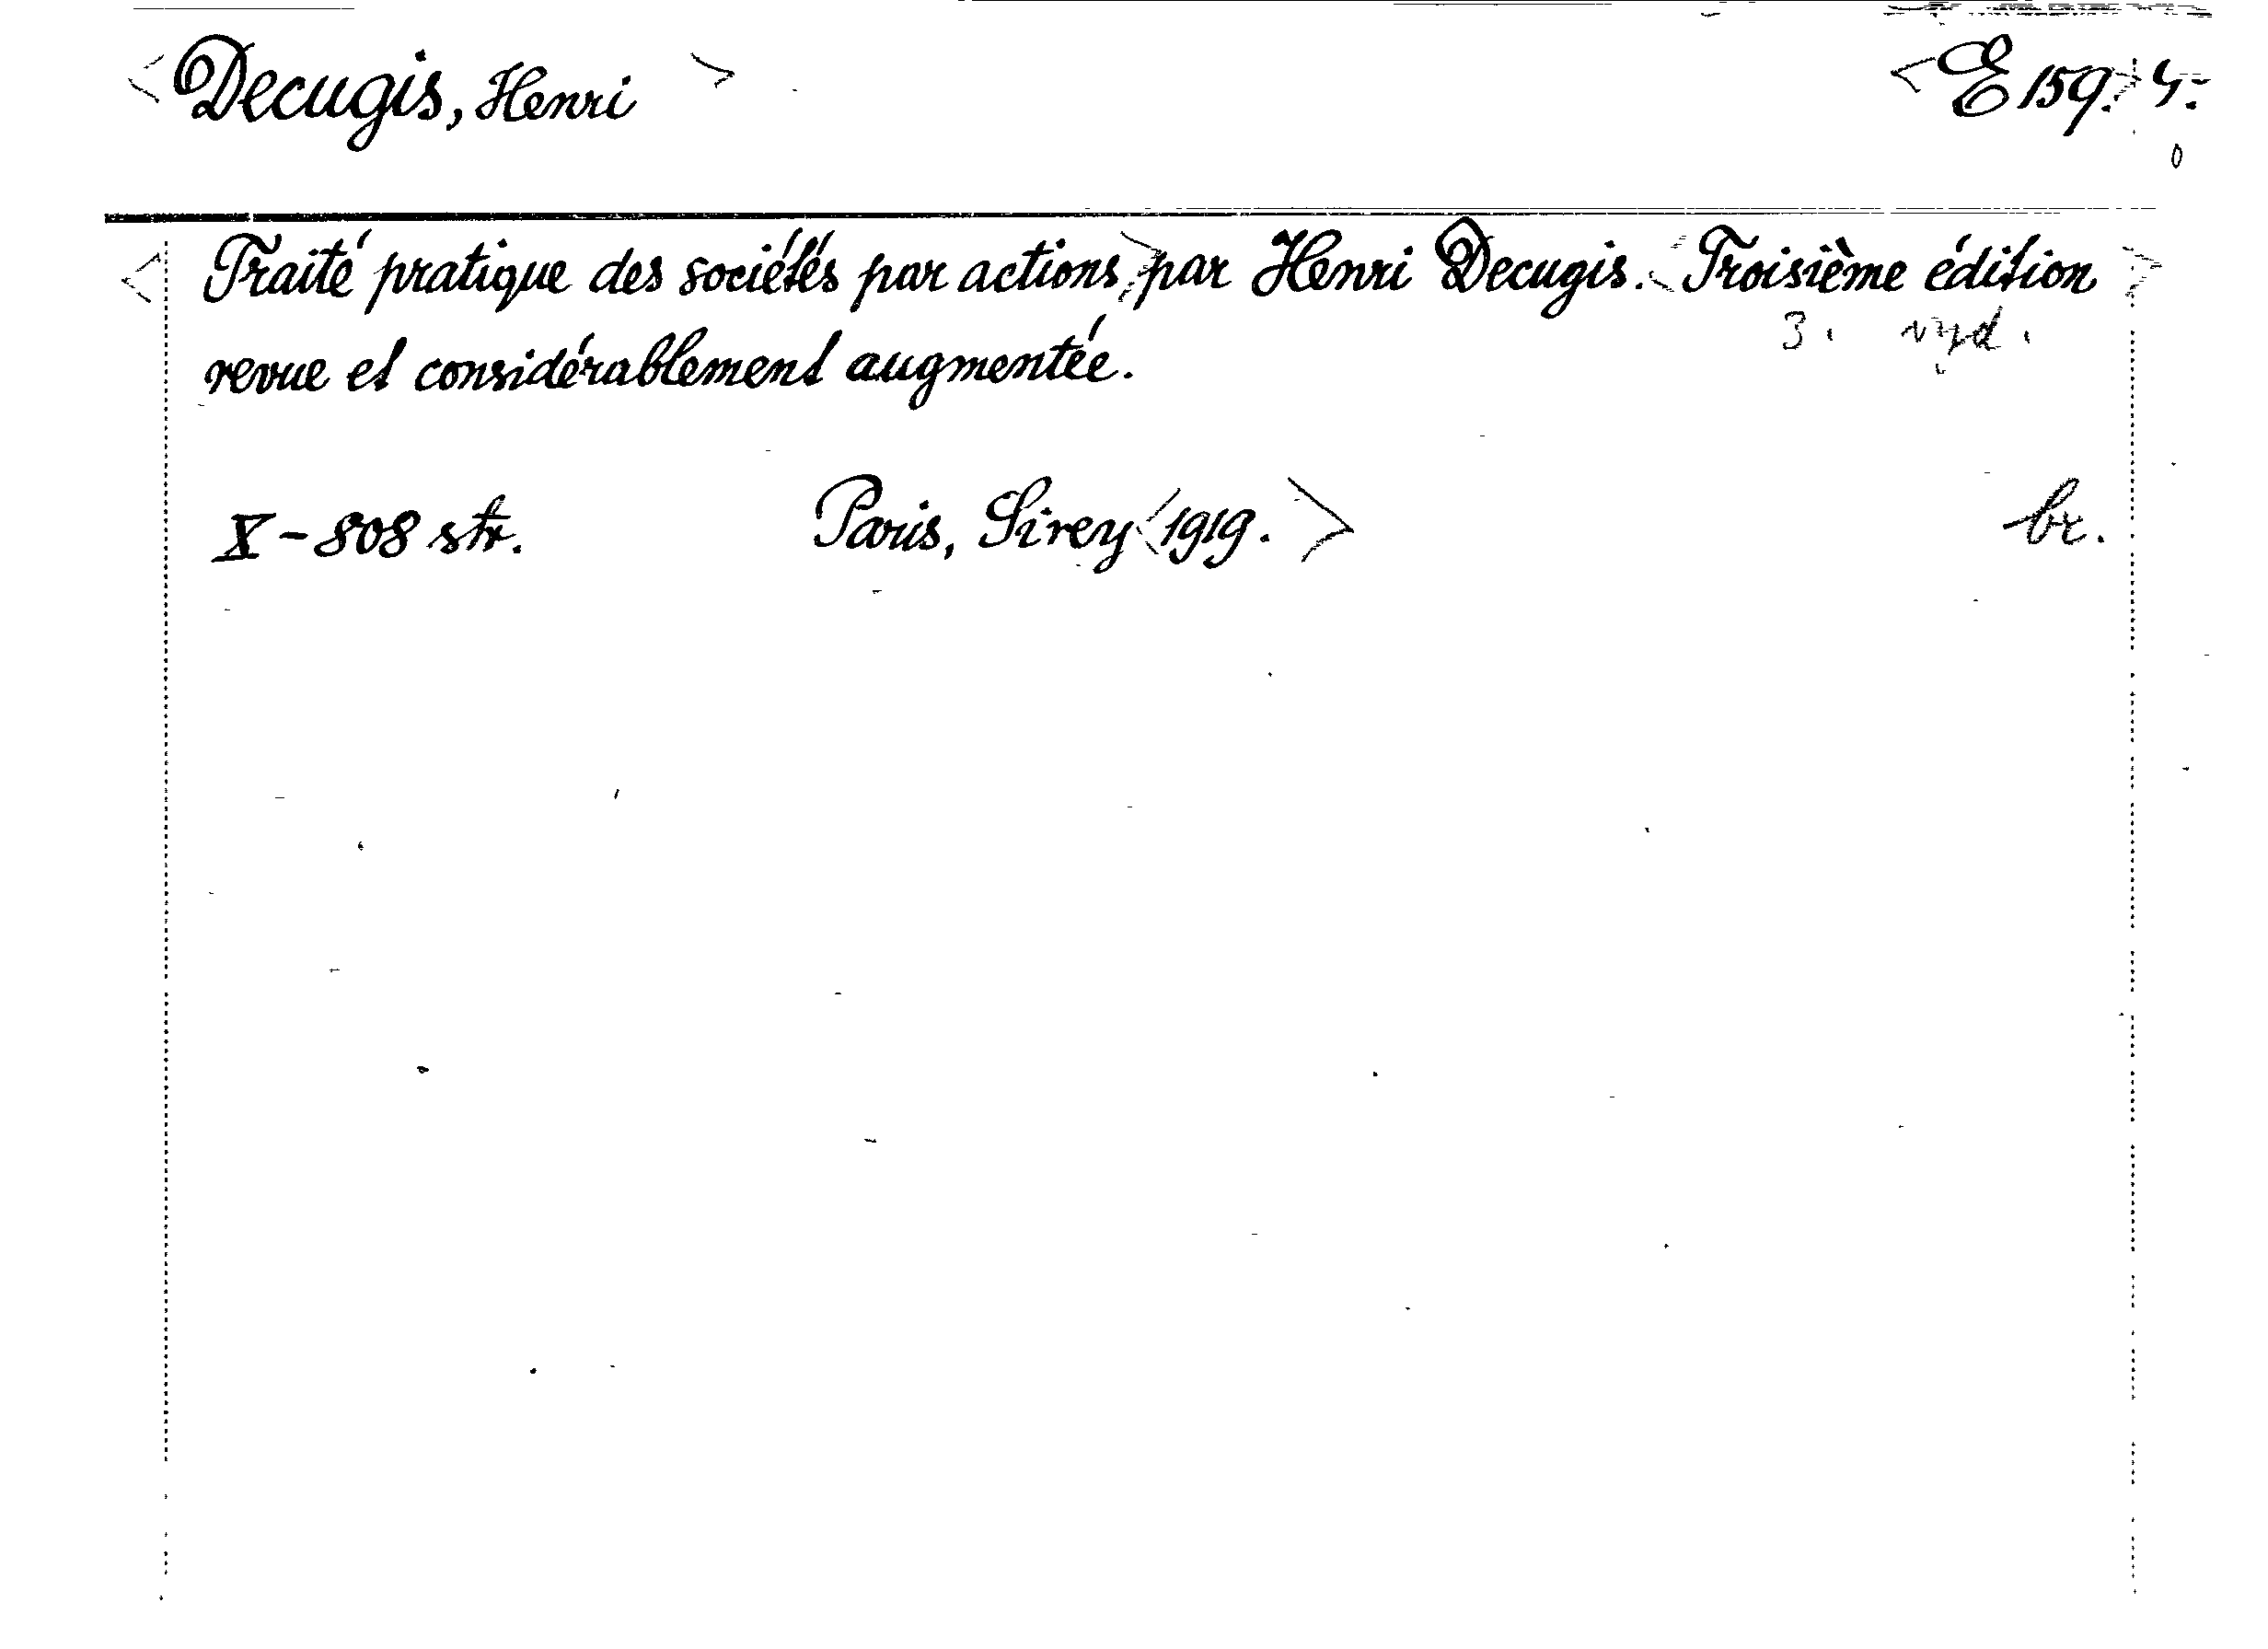 <Decugis, Henri> <E 159.> 4:
0
<Traité pratique des sociétés par actions,> par Henri Decugis. <Troisième édition>
3. vyd.
revue et considérablement augmentée.
X-808 str. Paris, Sirey <1919.> br.